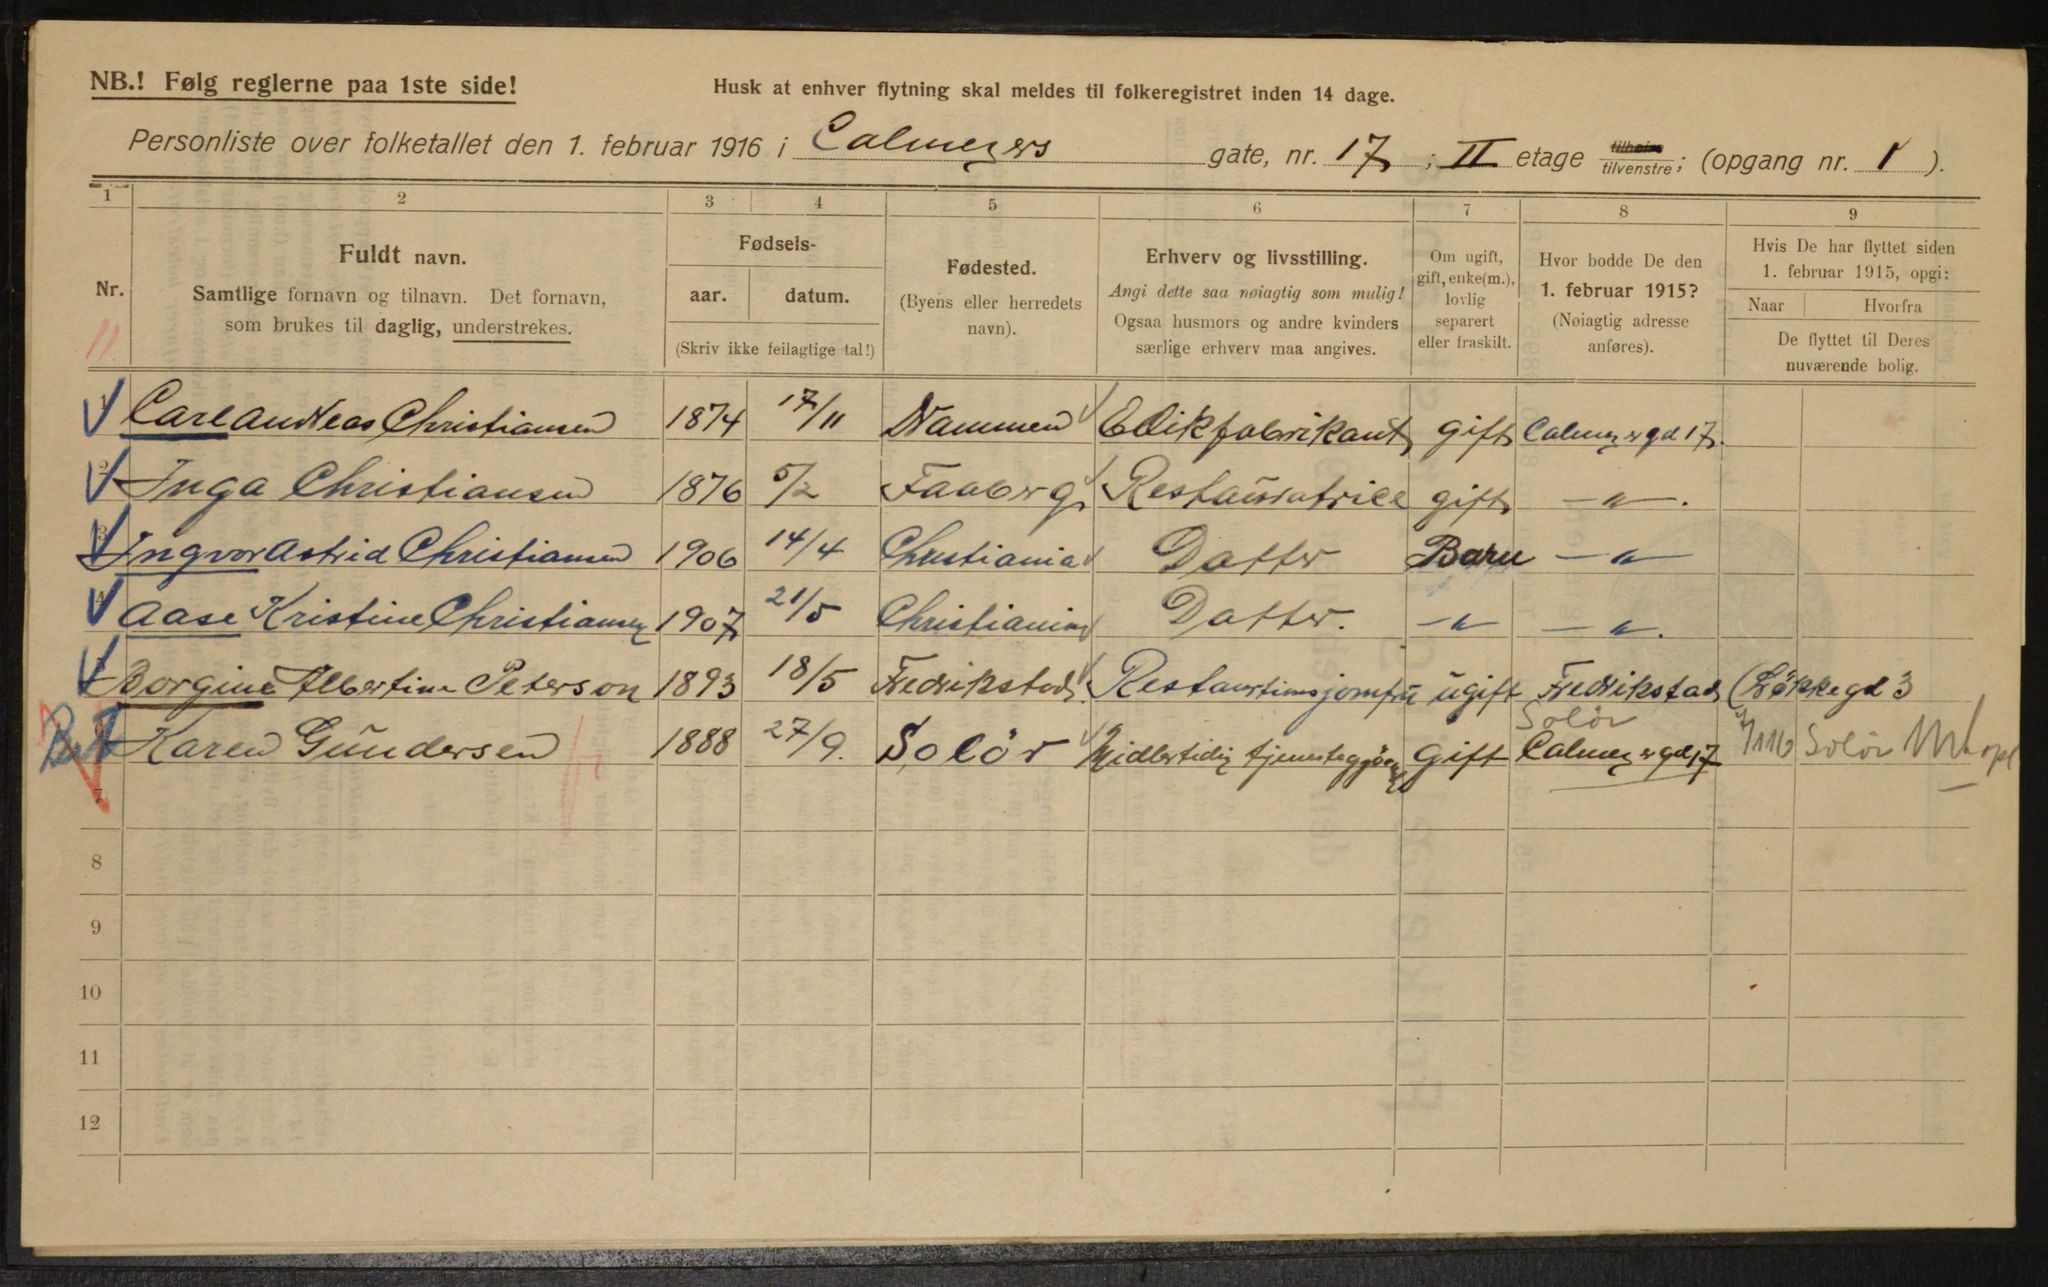 NB.! Følg reglerne paa 1ste side!
Husk at enhver flytning skal meldes til folkeregistret inden 14 dage.
Personliste over folketallet den 1. februar 1916 i Calmeyers gate, nr. 17 ; II etage tilhøire tilvenstre; (opgang nr. 1 ).
1 2 3 4 5 6 7 8 9
Nr.
11.
Fuldt navn.
Samtlige fornavn og tilnavn. Det fornavn,
som brukes til daglig, understrekes.
Fødsels-
aar. datum.
(Skriv ikke feilagtige tal!)
Fødested.
(Byens eller herredets
navn).
Erhverv og livsstilling.
Angi dette saa nøiagtig som mulig!
Ogsaa husmors og andre kvinders
særlige erhverv maa angives.
Om ugift,
gift, enke(m.),
lovlig
separert
eller fraskilt.
Hvor bodde De den
1. februar 1915?
(Nøiagtig adresse
anføres).
Hvis De har flyttet siden
1. februar 1915, opgi:
Naar Hvorfra
De flyttet til Deres
nuværende bolig.
1 Carl Andreas Christiansen 1874 17/11 Drammen Edikfabrikant gift Calmeyergd 17.
2 Inga Christiansen 1876 5/2 Faaberg Restauratrice gift -"-.
3 Ingvor Astrid Christiansen 1906 14/4 Christiania Datter Barn -"-
4 Aase Kristine Christiansen 1907 21/5 Christiania Datter. -"- -"-.
5 Borgine Albertine Peterson 1893 18/5 Fredrikstad Restaurtionsjomfru ugift Fredrikstad (Løkkegd 3
Solör
Karen Gundersen 1888 27/9. Solör Midlertidig gift Calmeyergd 17 Solör
7
8
9
10
11
12